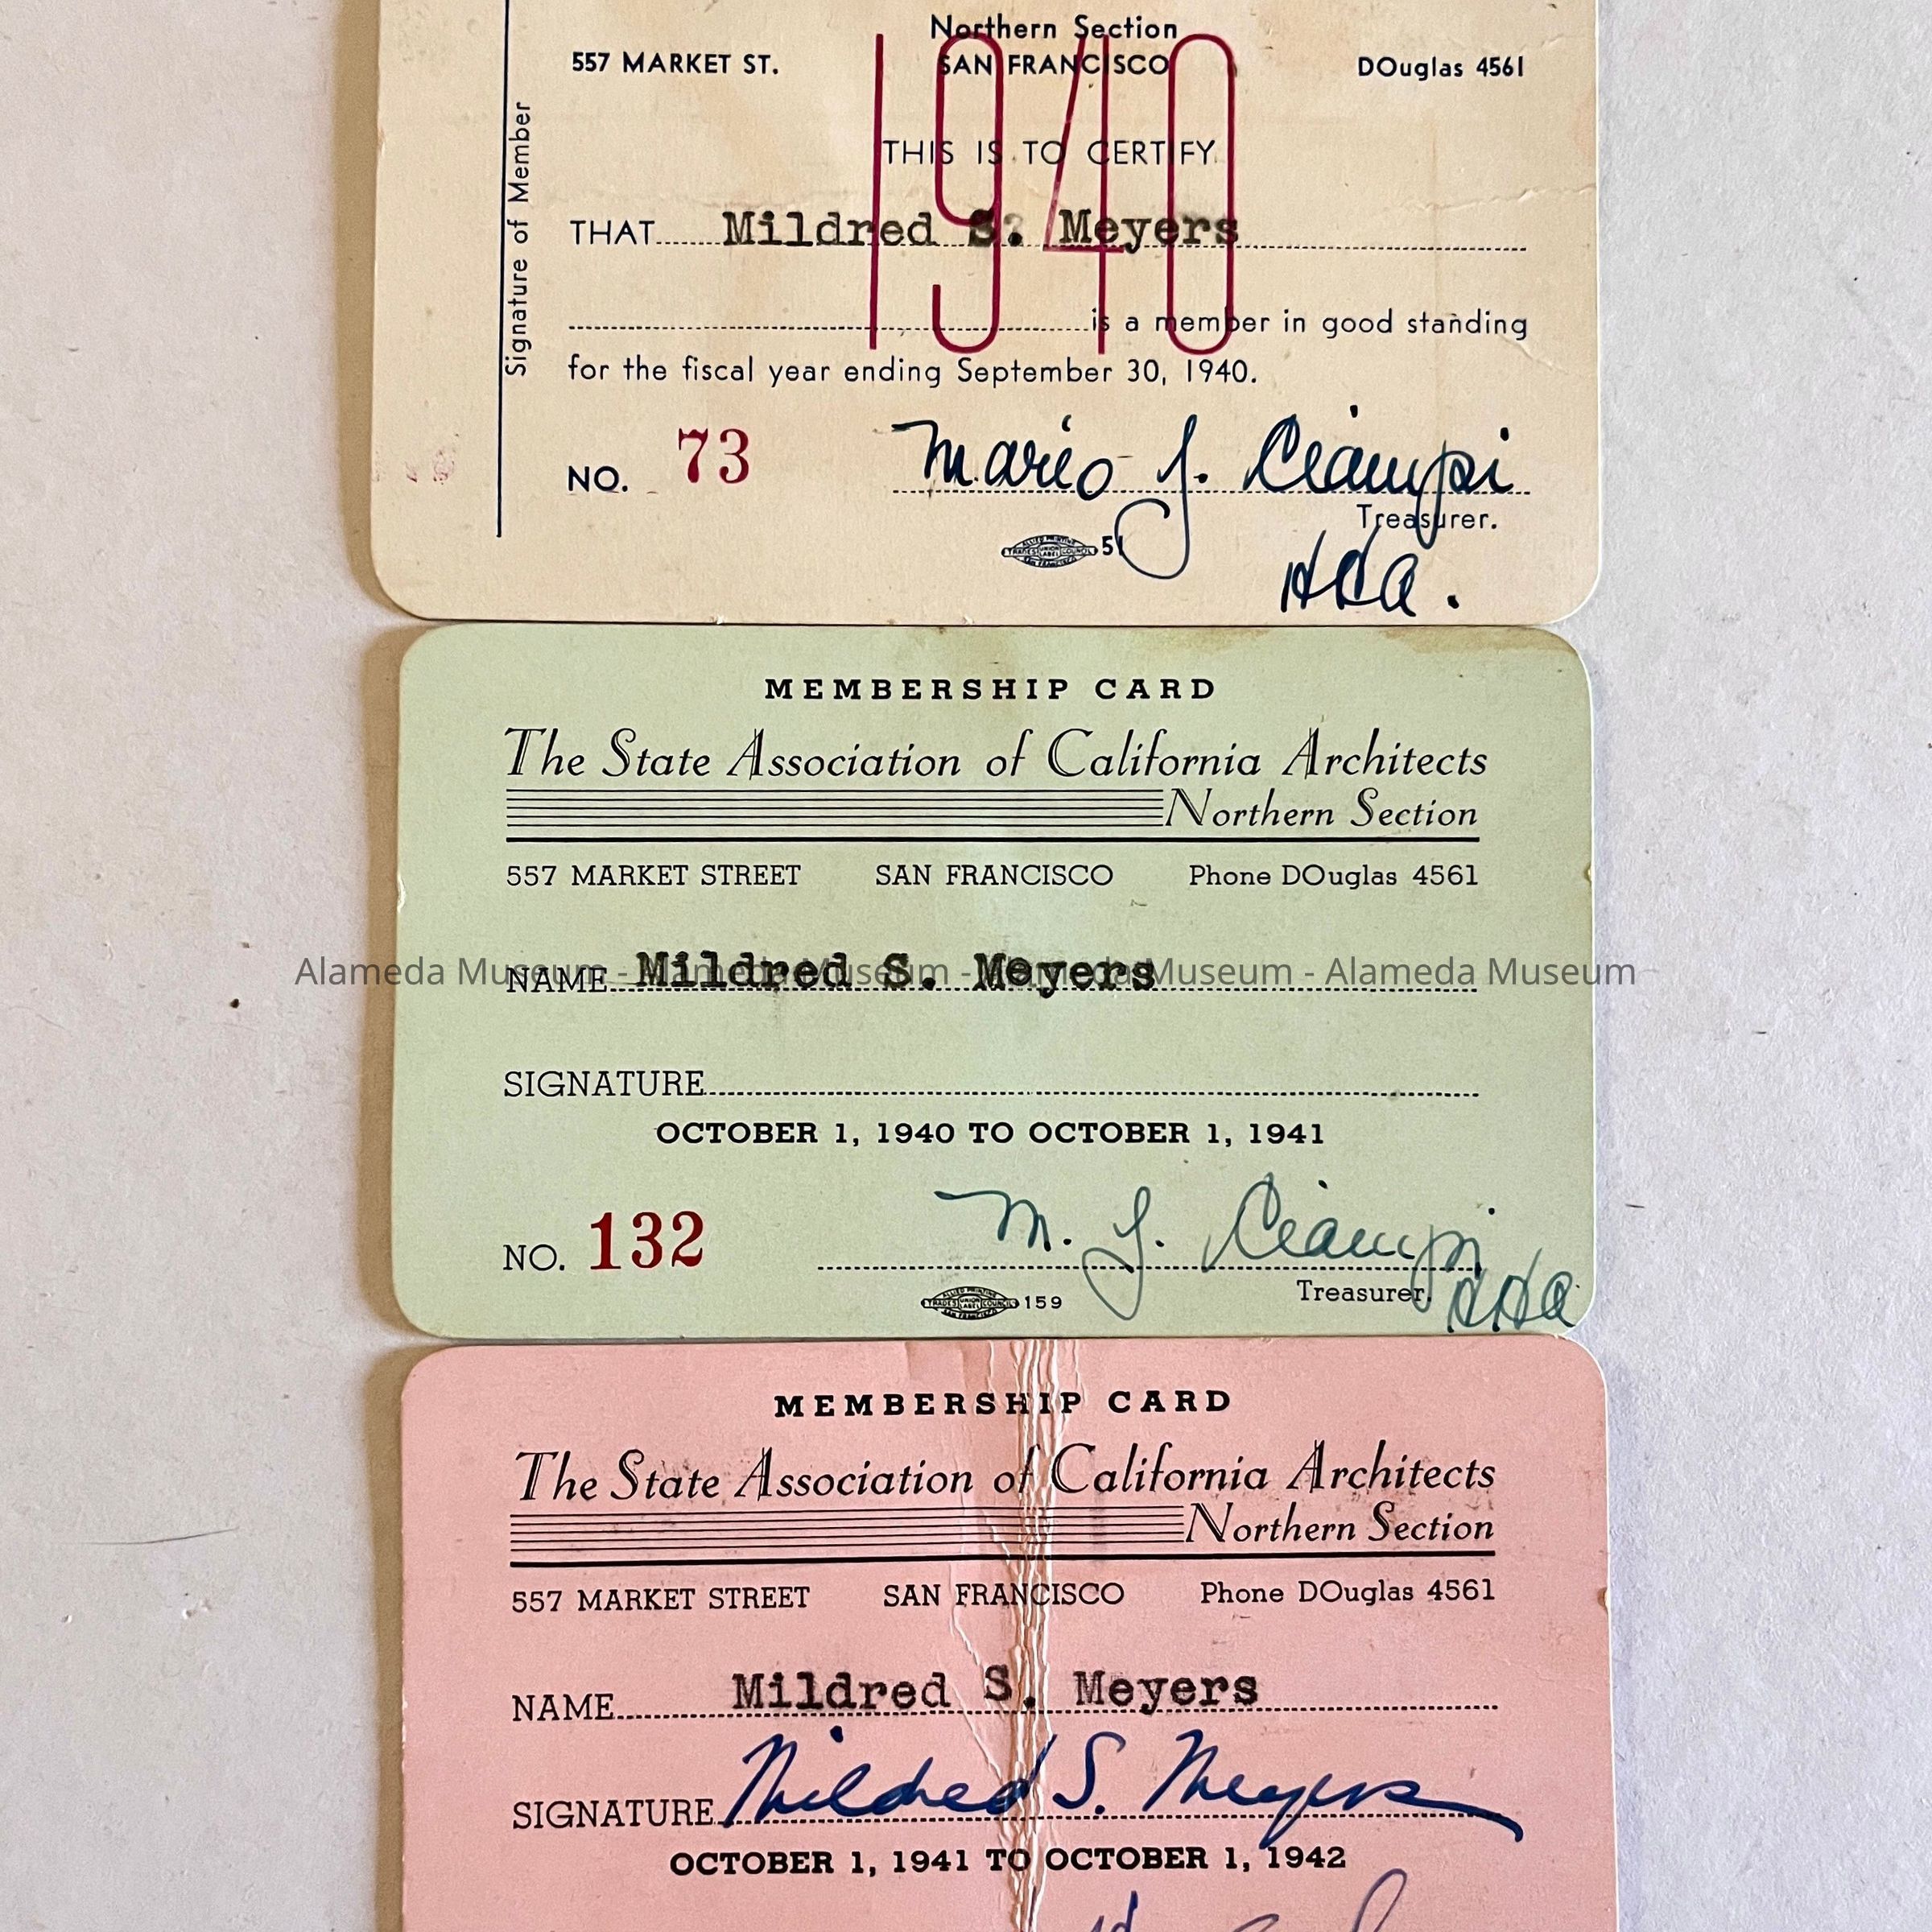 Northern Section
557 MARKET ST. SAN FRANCISCO DOuglas 4561
1940
Signature of Member
THIS IS TO CERTIFY
THAT Mildred S. Meyers
is a member in good standing
for the fiscal year ending September 30, 1940.
NO. 73 Mario J. Ciampi
Treasurer.
ALLIED PRINTING
TRADES UNION LABEL COUNCIL
SAN FRANCISCO
MEMBERSHIP CARD
The State Association of California Architects
Northern Section
557 MARKET STREET SAN FRANCISCO Phone DOuglas 4561
Alameda Museum - Alameda Museum - Alameda Museum - Alameda Museum
NAME Mildred S. Meyers
SIGNATURE
OCTOBER 1, 1940 TO OCTOBER 1, 1941
NO. 132 M. J. Ciampi
Treasurer.
ALLIED PRINTING
TRADES UNION LABEL COUNCIL 159
SAN FRANCISCO
MEMBERSHIP CARD
The State Association of California Architects
Northern Section
557 MARKET STREET SAN FRANCISCO Phone DOuglas 4561
NAME Mildred S. Meyers
SIGNATURE Mildred S. Meyers
OCTOBER 1, 1941 TO OCTOBER 1, 1942